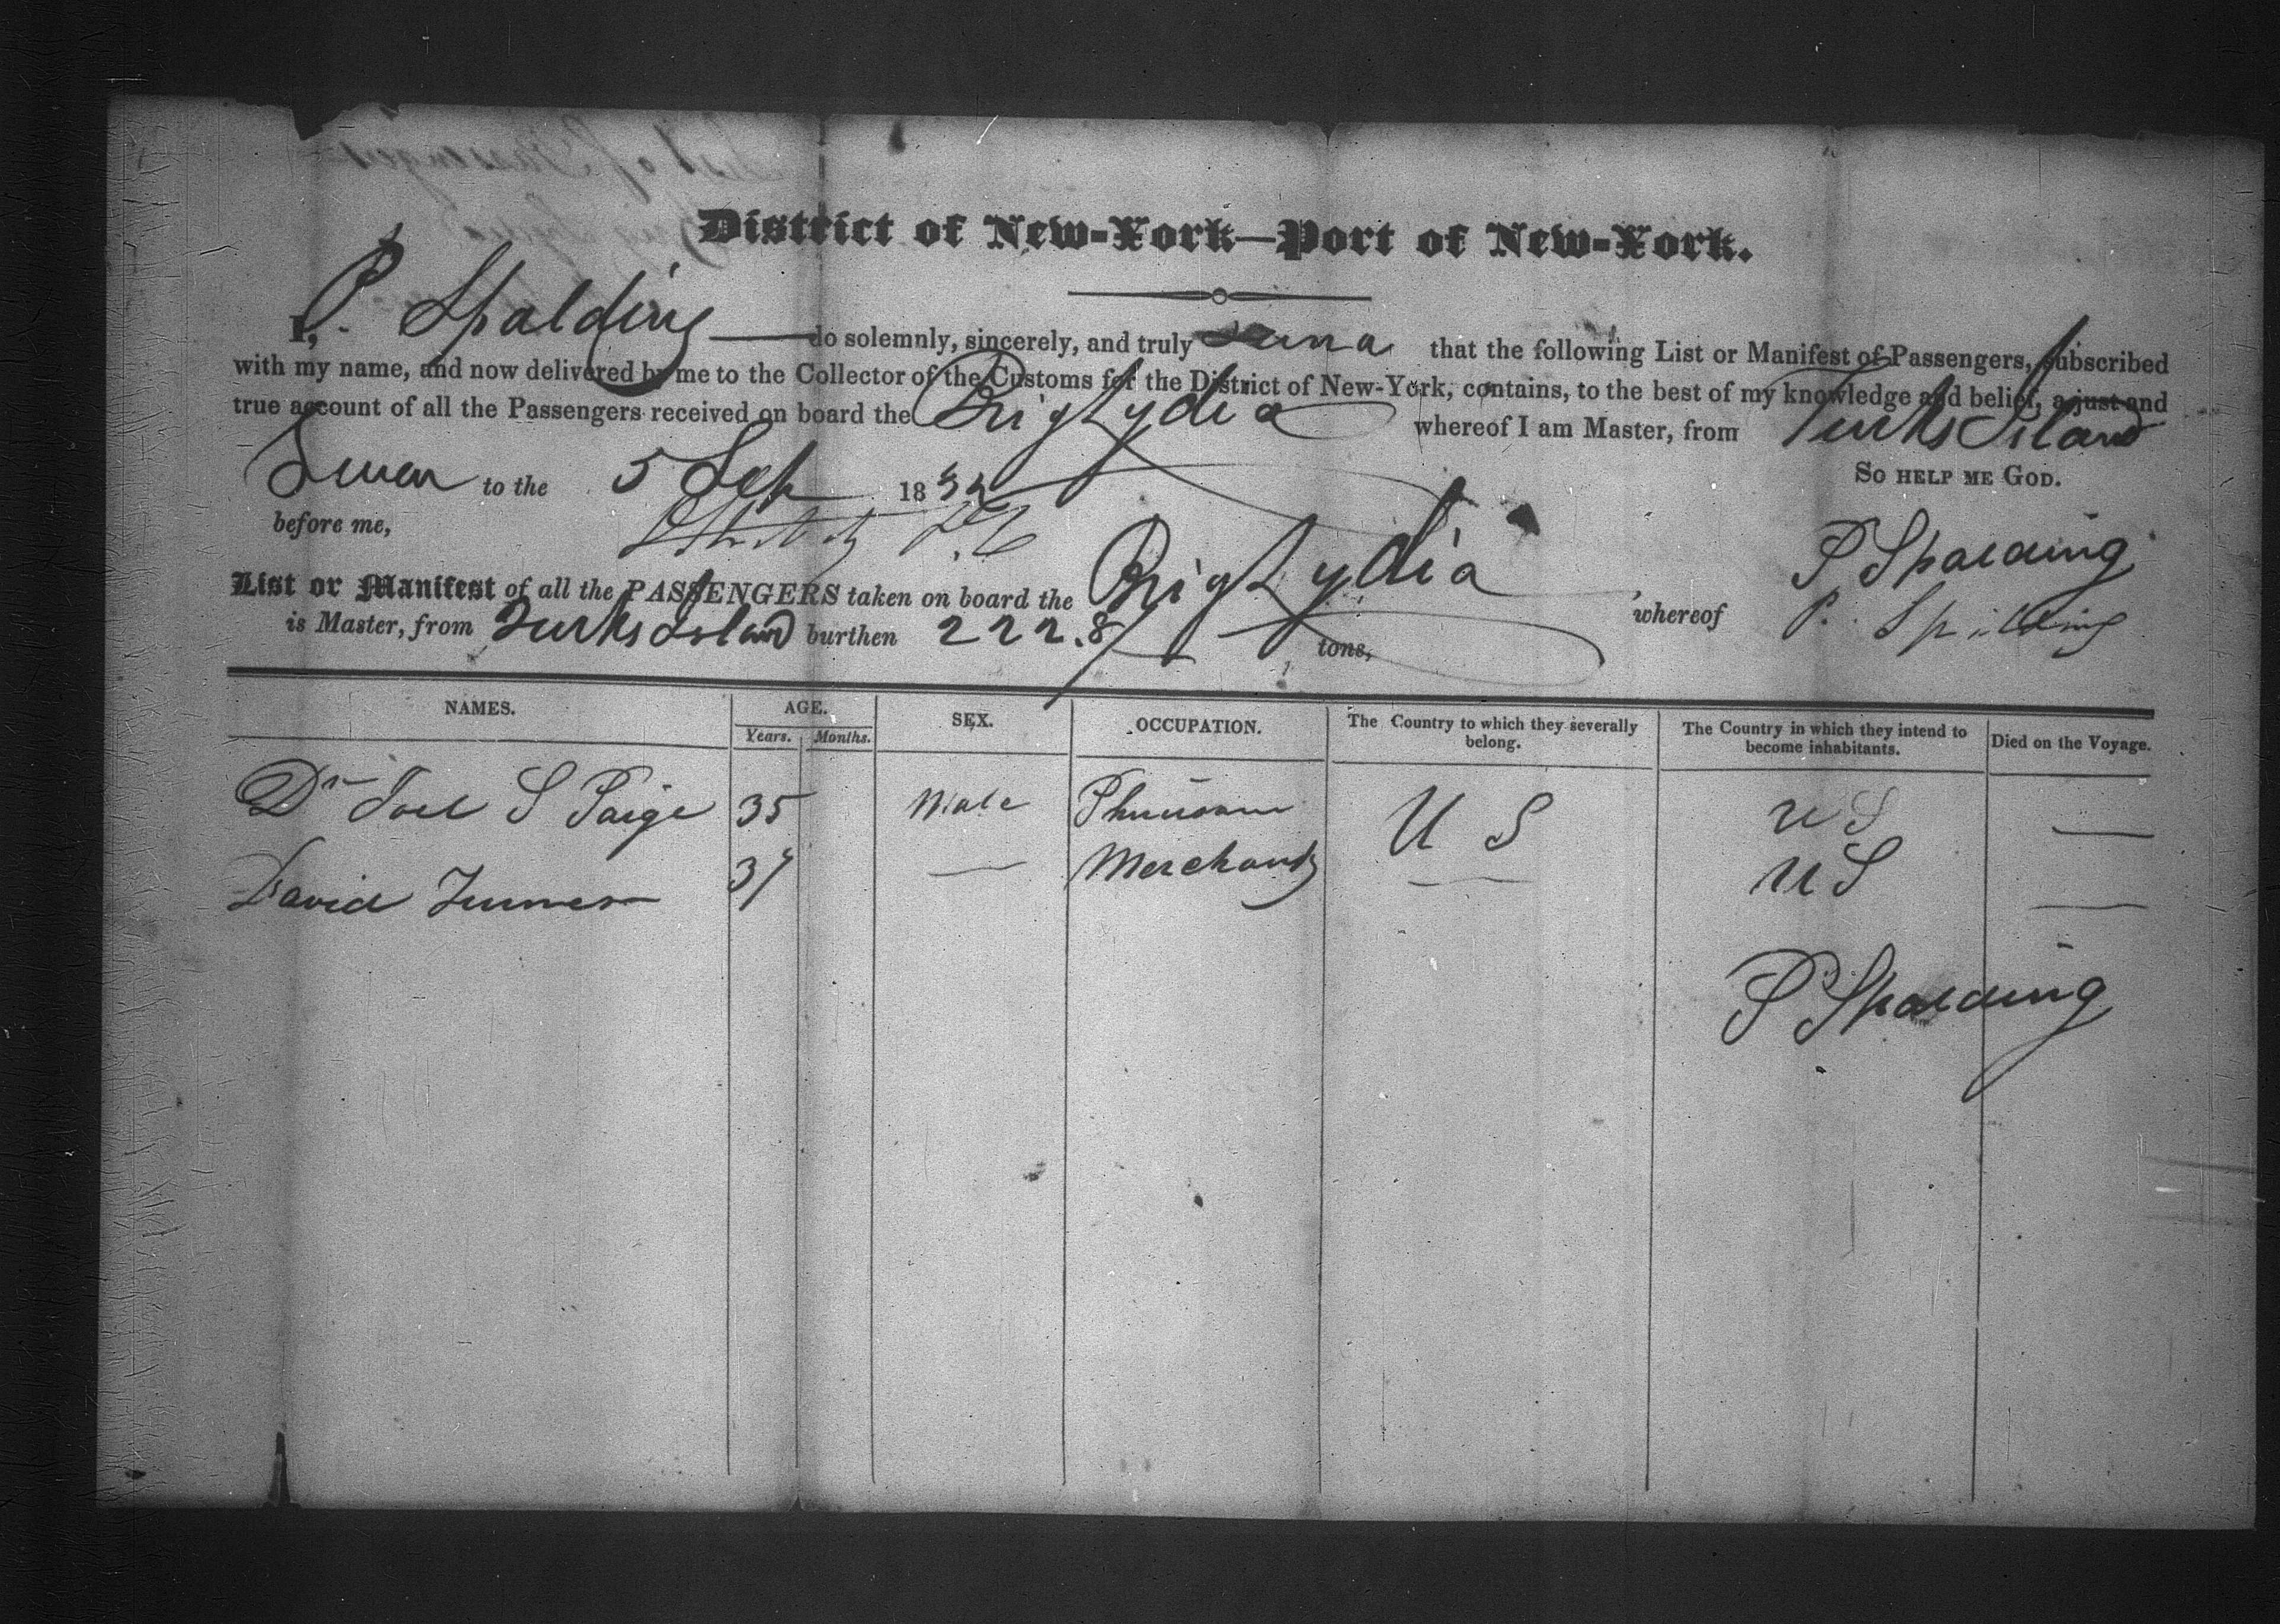 District of New-York—Port of New-York.
I, P. Spalding do solemnly, sincerely, and truly that the following List or Manifest of Passengers, subscribed
with my name, and now delivered by me to the Collector of the Customs for the District of New-York, contains, to the best of my knowledge and belief, a just and
true account of all the Passengers received on board the Brig Lydia whereof I am Master, from Turks Island
to the 5 Sep 1832 So help me God.
before me, P Spalding
List or Manifest of all the PASSENGERS taken on board the Brig Lydia whereof P. Spalding
is Master, from Turks Island burthen 222.8 tons,
NAMES. AGE. SEX. OCCUPATION. The Country to which they severally belong. The Country in which they intend to become inhabitants. Died on the Voyage.
Years. Months.
Dr Joel S Paige 35 Male U S U S —
David Turner 37 — Merchant — U S —
P Spalding